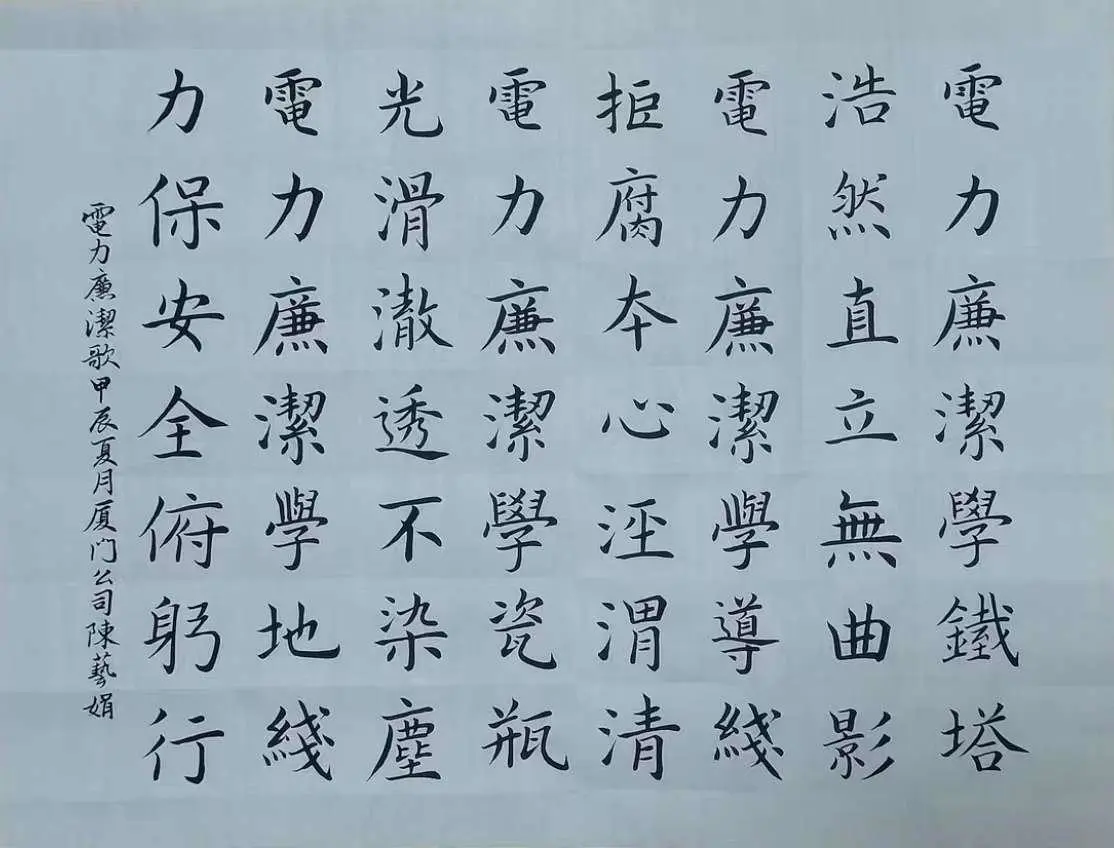 電力廉潔學鐵塔
浩然直立無曲影
電力廉潔學導綫
拒腐本心涇渭清
電力廉潔學瓷瓶
光滑澈透不染塵
電力廉潔學地綫
力保安全俯躬行
電力廉潔歌甲辰夏月厦门公司陳藝娟